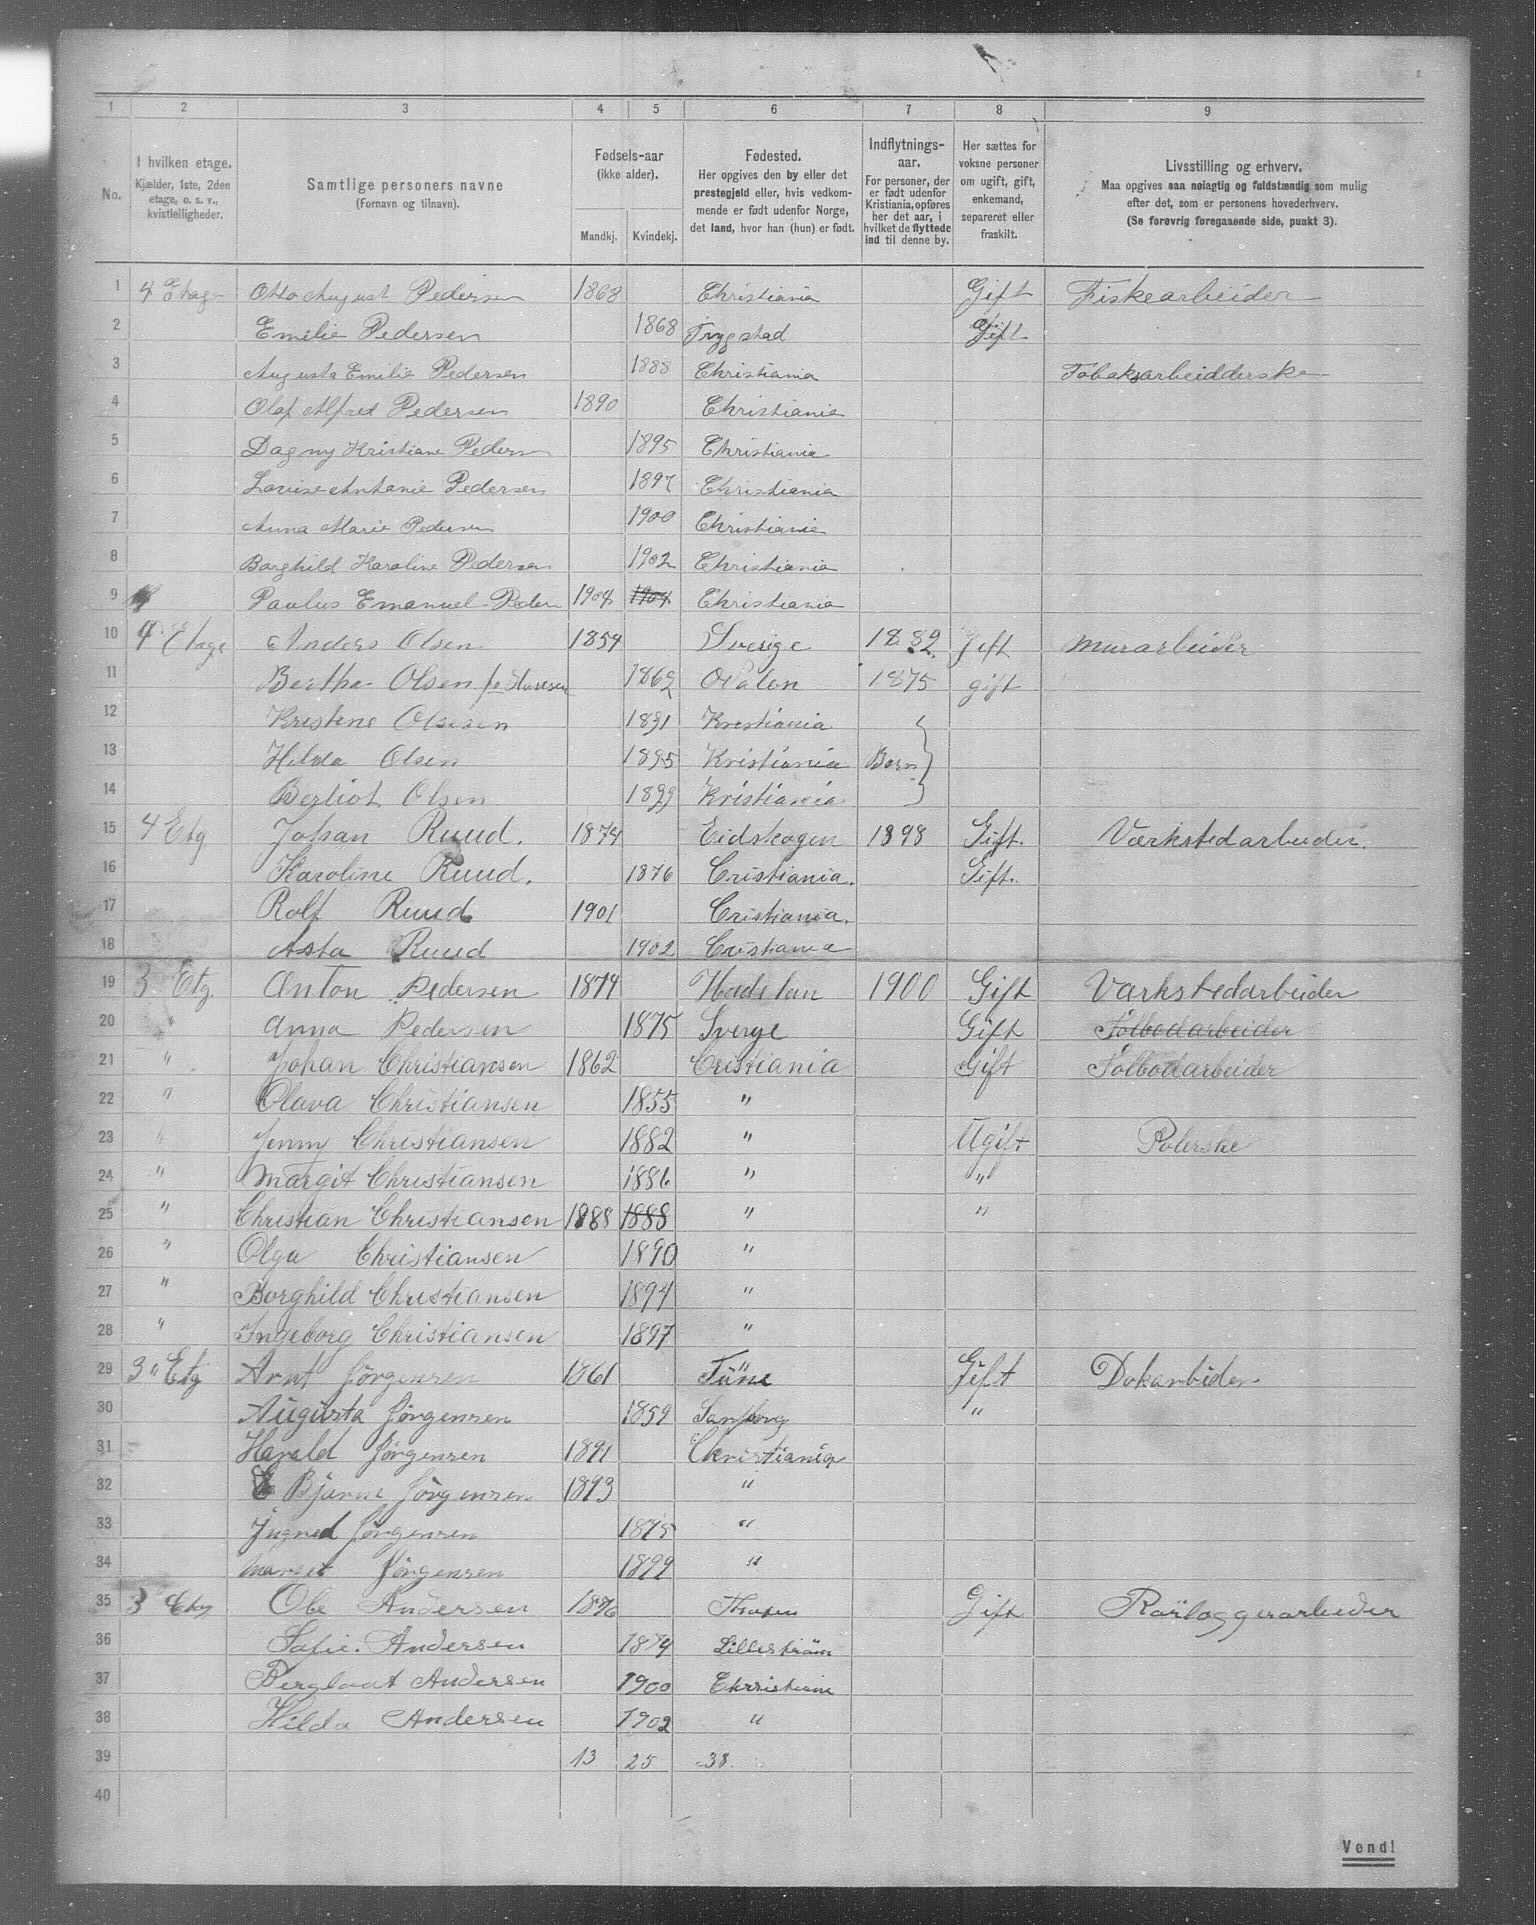 1 2 3 4 5 6 7 8 9
No. I hvilken etage. Kjælder, 1ste, 2den etage, o. s. v., kvistleiligheder. Samtlige personers navne (Fornavn og tilnavn). Fødsels-aar (ikke alder). Mandkj. Kvindekj. Fødested. Her opgives den by eller det prestegjeld eller, hvis vedkommende er født udenfor Norge, det land, hvor han (hun) er født. Indflytnings-aar. For personer, der er født udenfor Kristiania, opføres her det aar, i hvilket de flyttede ind til denne by. Her sættes for voksne personer om ugift, gift, enkemand, separeret eller fraskilt. Livsstilling og erhverv. Maa opgives saa nøiagtig og fuldstændig som mulig efter det, som er personens hovederhverv. (Se forøvrig foregaaende side, punkt 3).
1 4 Etage Otto August Pedersen 1868 Christiania Gift Fiskearbeider
2 Emilie Pedersen 1868 Trygstad Gift
3 Augusta Emilie Pedersen 1888 Christiania Tobaksarbeidderske
4 Olaf Alfred Pedersen 1890 Christiania
5 Dagny Kristiane Pedersn 1895 Christiania
6 Lovise Antonie Pedersen 1897 Christiania
7 Anna Marie Pedersen 1900 Christiania
8 Borghild Karoline Pedersen 1902 Christiania
9 Paulus Emanuel Peder 1904 1904 Christiania
10 4 Etage Anders Olsen 1854 Sverige 1882 Gift Murarbeider
11 Bertha Olsen 1862 1875 gift
12 Kristine Olsesen 1891 Kristiania
13 Hilda Olsen 1895 Kristiania Barn
14 Bergliot Olsen 1899 Kristiania
15 4 Etg Johan Ruud. 1874 Eidskogen 1898 Gift. Værkstedarbeider.
16 Karoline Ruud. 1876 Cristiania. Gift.
17 Rolf Ruud 1901 Cristiania.
18 Asta Ruud 1902 Cristiania
19 3 Etg. Anton Pedersen 1874 1900 Gift Værkstedarbeider
20 " Anna Pedersen 1875 Sverge Gift Tolbodarbeider
21 " Johan Christiansen 1862 Cristiania Gift Tolbodarbeider
22 " Olava Christiansen 1855 "
23 " Jenny Christiansen 1882 " Ugift Polerske
24 " Margit Christiansen 1886 " "
25 " Christian Christiansen 1888 1888 " "
26 " Olga Christiansen 1890 "
27 " Borghild Christiansen 1894 "
28 " Ingeborg Christiansen 1897 "
29 3 " Etg Arnt Jørgensen 1861 Tune Gift Dokarbider
30 Augusta Jørgensen 1859 "
31 Harald Jørgensen 1891 Christiania
32 Bjarne Jørgensen 1893 "
33 Ingred Jørgensen 1895 "
34 Marget Jørgensen 1899 "
35 3 Etag Ole Andersen 1876 Gift Rørlæggerarbeider
36 Sofie. Andersen 1874 Lillestrøm
37 Andersen 1900 Christiania
38 Hilda Andersen 1902 "
39 13 25 38.
40
Vend!